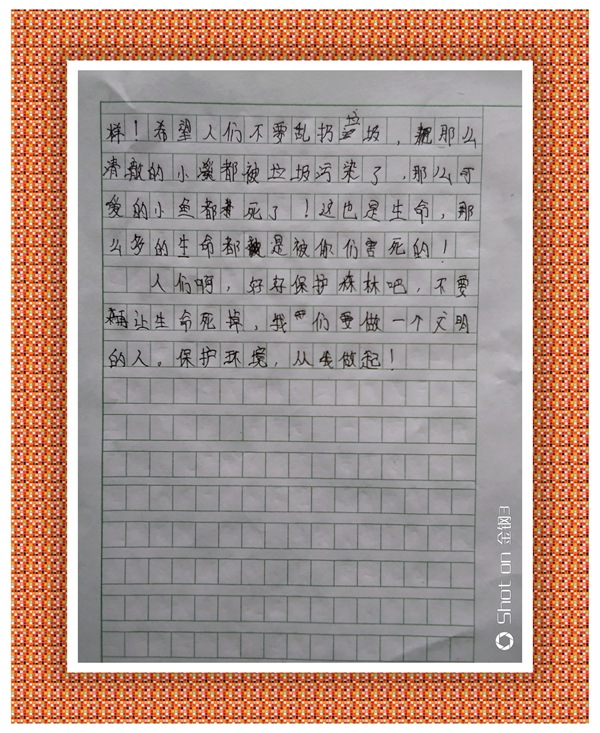 样！希望人们不要乱扔垃圾，那么
清澈的小溪都被垃圾污染了，那么可
爱的小鱼都死了！这也是生命，那
么多的生命都是被你们害死的！
人们啊，好好保护森林吧，不要
再让生命死掉，我们要做一个文明
的人。保护环境，从我做起！
Shot on 金钢3